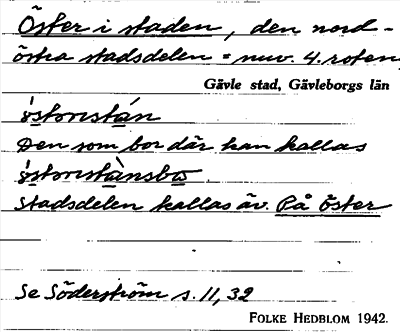 Öster i staden, den nord-
östra stadsdelen = nuv. 4. roten,
Gävle stad, Gävleborgs län
Den som bor där kan kallas
Stadsdelen kallas äv. På Öster
Se Söderström s. 11, 32
FOLKE HEDBLOM 1942.